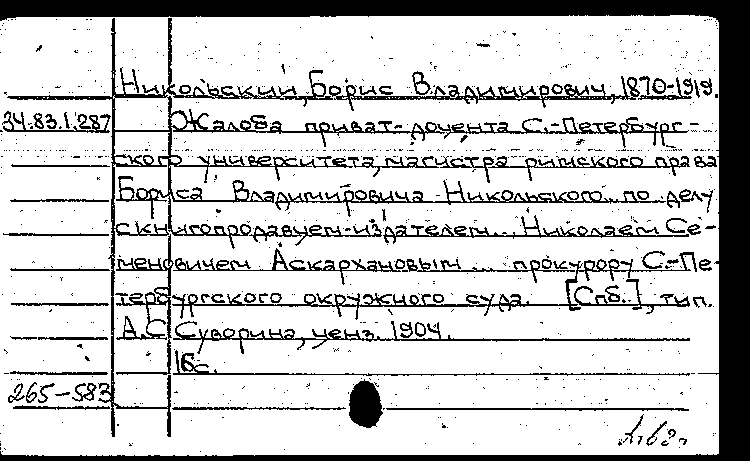 Никольский, Борис Владимирович, 1870-1919.
34.83.1.287 Жалоба приват-доцента С.-Петербург-
ского университета, магистра римского права
Бориса Владимировича Никольского.. по делу
с книгопродавцем-издателем.. Николаем Се-
меновичем Аскархановым... прокурору С.-Пе-
тербургского окружного суда. [Спб.], тип.
А.С Суворина, ценз. 1904.
16с.
265-583